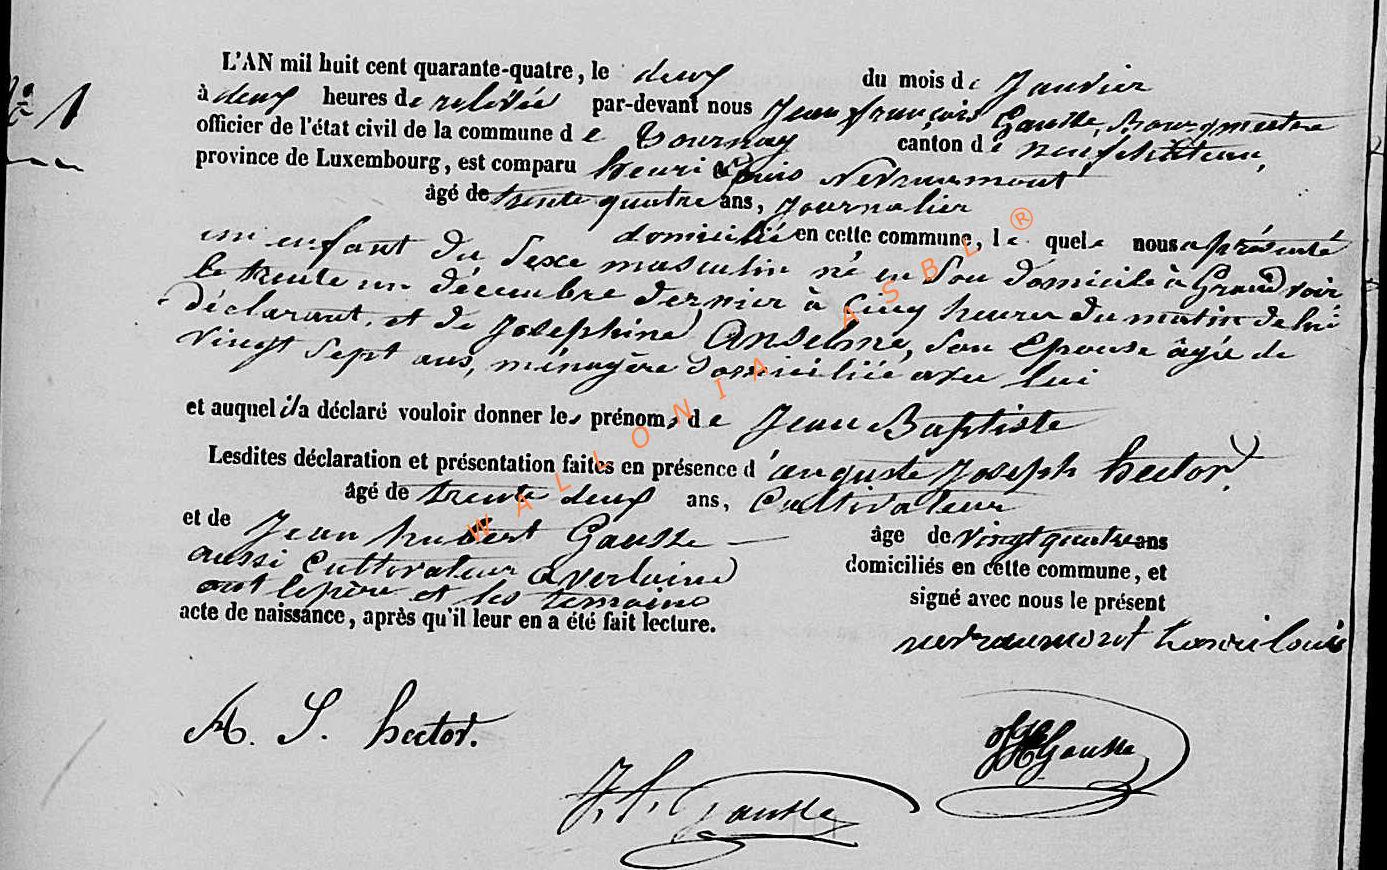 N° 1
L'AN mil huit cent quarante-quatre, le deux du mois de Janvier
à deux heures de relevée par-devant nous Jean françois Gausse, Bourgmestre
officier de l'état civil de la commune de Tournay canton de neufchâteau,
province de Luxembourg, est comparu henri Louis Netraumont
âgé de trente quatre ans, Journalier
domicilié en cette commune, lequel nous a présenté
un enfant du Sexe masculin né en Son domicile à Grand voir
le trente un décembre dernier à Cinq heures du matin de lui
déclarant, et de Josephine Anselme, Son Epouse âgée de
Vingt Sept ans, ménagère domiciliée avec lui
et auquel il a déclaré vouloir donner les prénoms de Jean Baptiste
Lesdites déclaration et présentation faites en présence d'auguste Joseph hector,
âgé de trente deux ans, Cultivateur
et de Jean hubert Gausse âge de vingt quatre ans
aussi Cultivateur a verlaine domiciliés en cette commune, et
ont le père et les temoins signé avec nous le présent
acte de naissance, après qu'il leur en a été fait lecture.
netraumont henri louis
A. S. hector.
JH Gausse
J. f. Gausse
WALLONIA ASBL ®